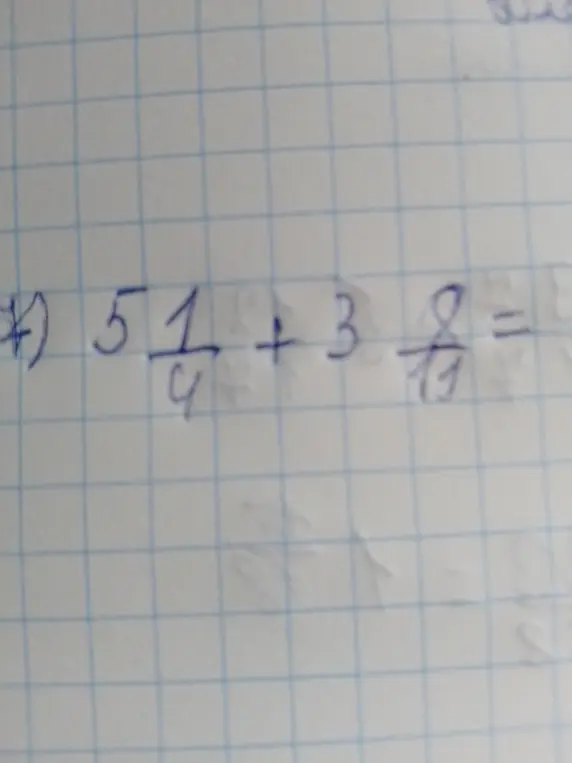 ж) 5 1/4 + 3 8/11 =